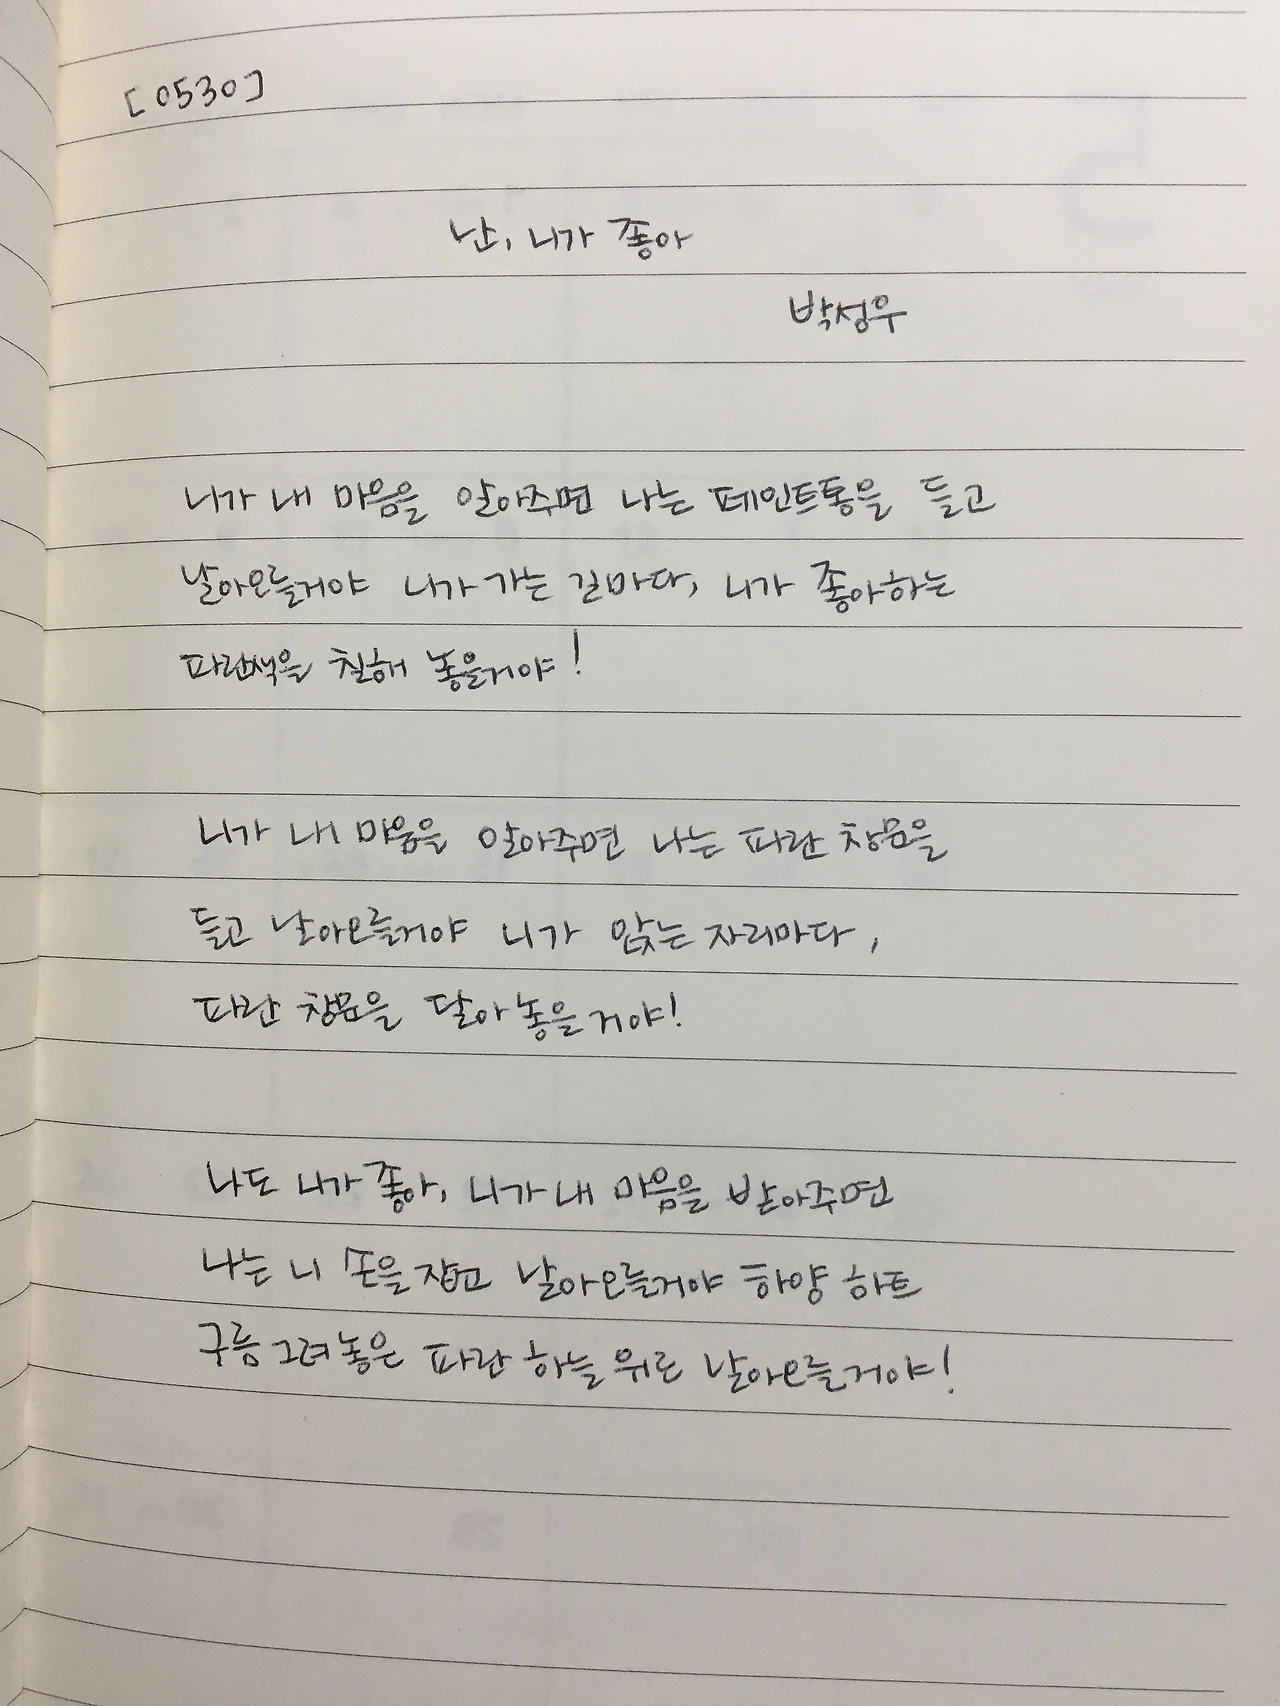 [0530]
난, 니가 좋아
박성우
니가 내 마음을 알아주면 나는 페인트통을 들고
날아오를거야 니가 가는 길마다, 니가 좋아하는
파란색을 칠해 놓을거야!
니가 내 마음을 알아주면 나는 파란 창문을
들고 날아오를거야 니가 앉는 자리마다,
파란 창문을 달아놓을거야!
나도 니가 좋아, 니가 내 마음을 받아주면
나는 니 손을 잡고 날아오를거야 하양 하트
구름 그려놓은 파란 하늘 위로 날아오를거야!